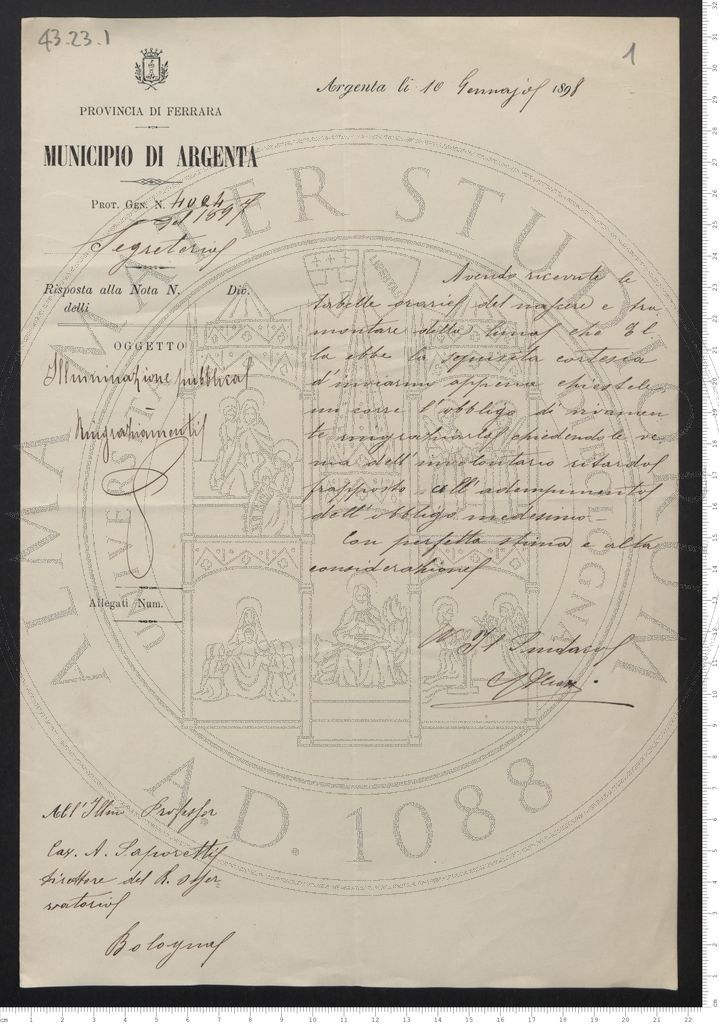 43.23.1
1
Argenta li 10 Gennajo 1898
PROVINCIA DI FERRARA
MUNICIPIO DI ARGENTA
PROT. GEN. N. 4024
del 1897
Segreteria
Risposta alla Nota N. Div.
delli
OGGETTO
Illuminazione pubblica
Ringraziamenti
Allegati Num.
Avendo ricevute le
tabelle orarie del nascere e tra
montare della luna che El
la ebbe la squisita cortesia
d'inviarmi appena chieste,
mi corre l'obbligo di vivamen
te ringraziarla chiedendole ve
nia dell'involontario ritardo
frapposto all'adempimento
dell'obbligo medesimo.
Con perfetta stima e alta
considerazione
Il Sindaco
All'Illmo Professor
Cav. A. Saporetti
Direttore del R. Osser
vatorio
Bologna
ALMA MATER STUDIORUM
A.D. 1088